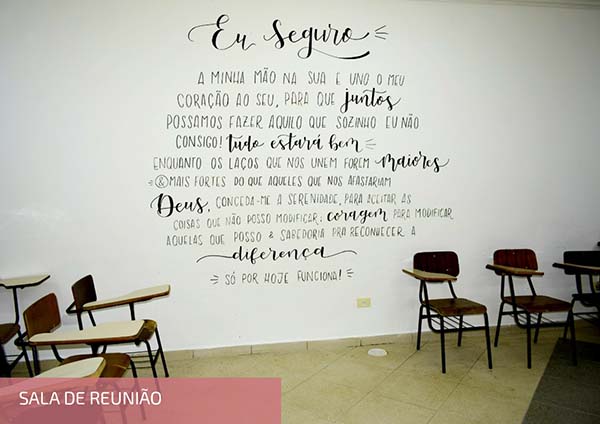 Eu Seguro
A MINHA MÃO NA SUA E UNO O MEU
CORAÇÃO AO SEU, PARA QUE juntos
POSSAMOS FAZER AQUILO QUE SOZINHO EU NÃO
CONSIGO! tudo estará bem
ENQUANTO OS LAÇOS QUE NOS UNEM FOREM maiores
& MAIS FORTES DO QUE AQUELES QUE NOS AFASTARIAM
Deus, CONCEDA-ME A SERENIDADE, PARA ACEITAR AS
COISAS QUE NÃO POSSO MODIFICAR; coragem PARA MODIFICAR
AQUELAS QUE POSSO & SABEDORIA PRA RECONHECER A
diferença
SÓ POR HOJE FUNCIONA!
SALA DE REUNIÃO